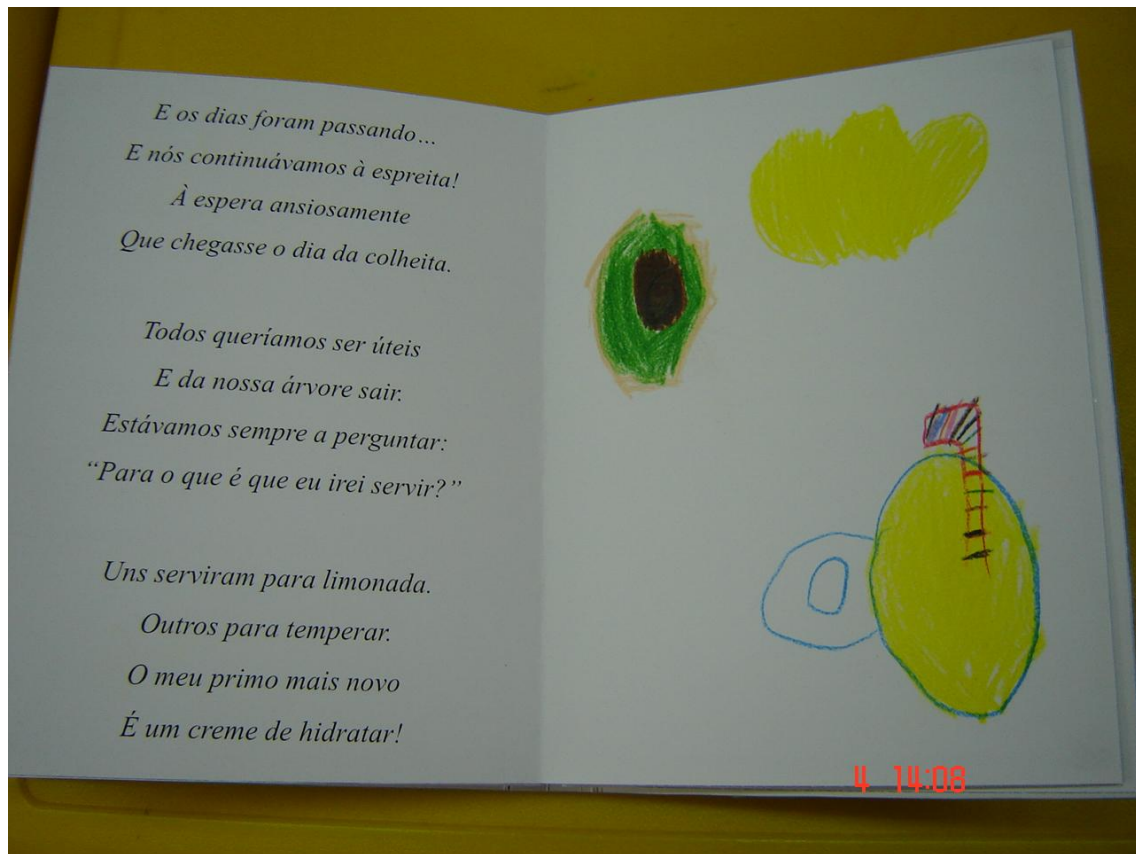 E os dias foram passando...
E nós continuávamos à espreita!
À espera ansiosamente
Que chegasse o dia da colheita.
Todos queríamos ser úteis
E da nossa árvore sair.
Estávamos sempre a perguntar:
“Para o que é que eu irei servir?”
Uns serviram para limonada.
Outros para temperar.
O meu primo mais novo
É um creme de hidratar!
4 14:08